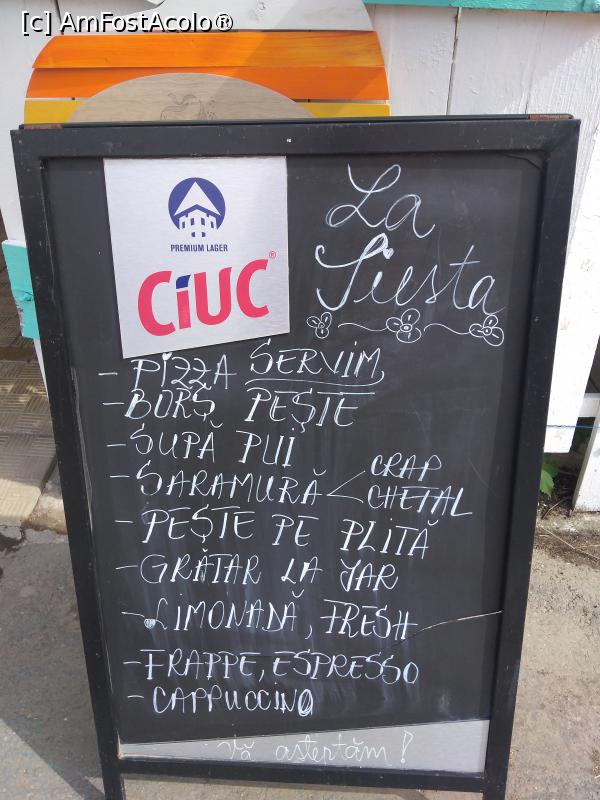 [c] AmFostAcolo®
PREMIUM LAGER
CiUC®
La
Siesta
SERVIM
- PIZZA
- BORȘ PEȘTE
- SUPĂ PUI
- SARAMURĂ < CRAP
CHEFAL
- PEȘTE PE PLITĂ
- GRĂTAR LA JAR
- LIMONADĂ, FRESH
- FRAPPE, ESPRESSO
- CAPPUCCINO
Vă așteptăm!